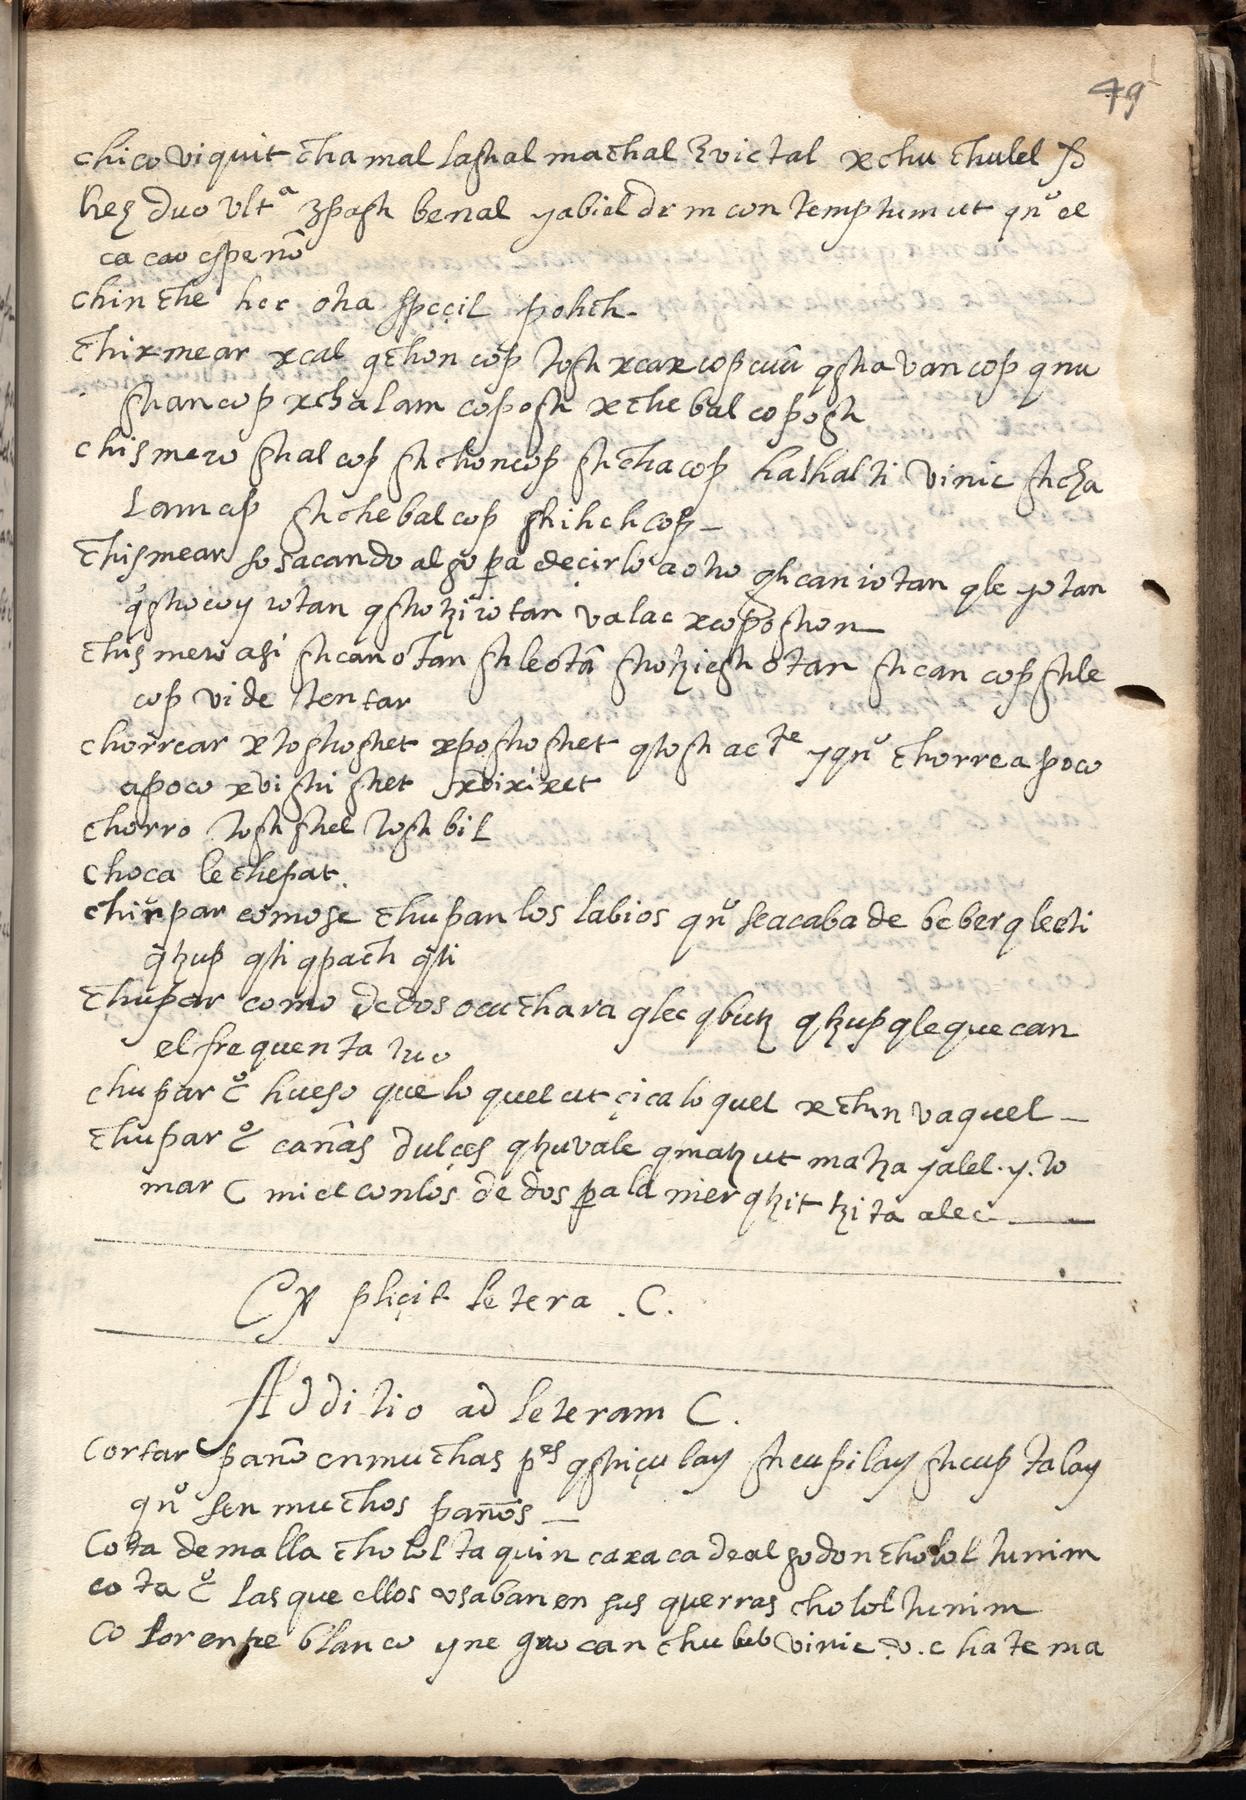 49
chico viquit chamal lashal machal zvictal xchu chulel
heç duo vltᵃ zpash benal yabiel dr in contemptum ut qnº el
cacao cspenō
chinche hoc otra speçil pohch
chixmear xcal qchon cop tosh xcax cop cuū qsha van cop q nu
shan cop xchalam coposh xchebal coposh
chismero shal cop shchon cop shcha cop halhalti vinic shcha
lam cop shchebal cop shihch cop
chismear sosacando algo pa deçirlo a otro qlican iotan qle yotan
qshocoy iotan qshotzi iotan valac xcoposhon
chismero asi shcan otan shle otā shotziesh otan shcan cop shle
cop vide tentar
chorrear xtoshoshet xposhoshet qtosh acᵗᵉ y qnº chorrea poco
a poco xvishishet xvixixet
chorro toshshel toshbil
choca lechepat
chupar como se chupan los labios qnº se acaba de beber q lechi
qtzup qti qpach qti
chupar como dedos o cuchara qlec qbutz qtzup qlequecan
el frequentatiuo
chupar ċ hueso quelo quel ut çicalo quel xchin vaquel
chupar ċ cañas dulçes qtzuvale qmatz ut matza yalel . y . to
mar c miel con los dedos pa lamer qtzit tzita alec
Explicit letera . C .
Additio ad leteram C .
Cortar c paño en muchas pᵉˢ qshiçulay shcupilay shcuptalay
qnº sen muchos paños
Cota de malla cholol taquin caxaca de algodon cholol tunim
cota ċ las que ellos vsaban en sus guerras cholol tunim
Color entre blanco y negro canchub vinic . v . c hatema